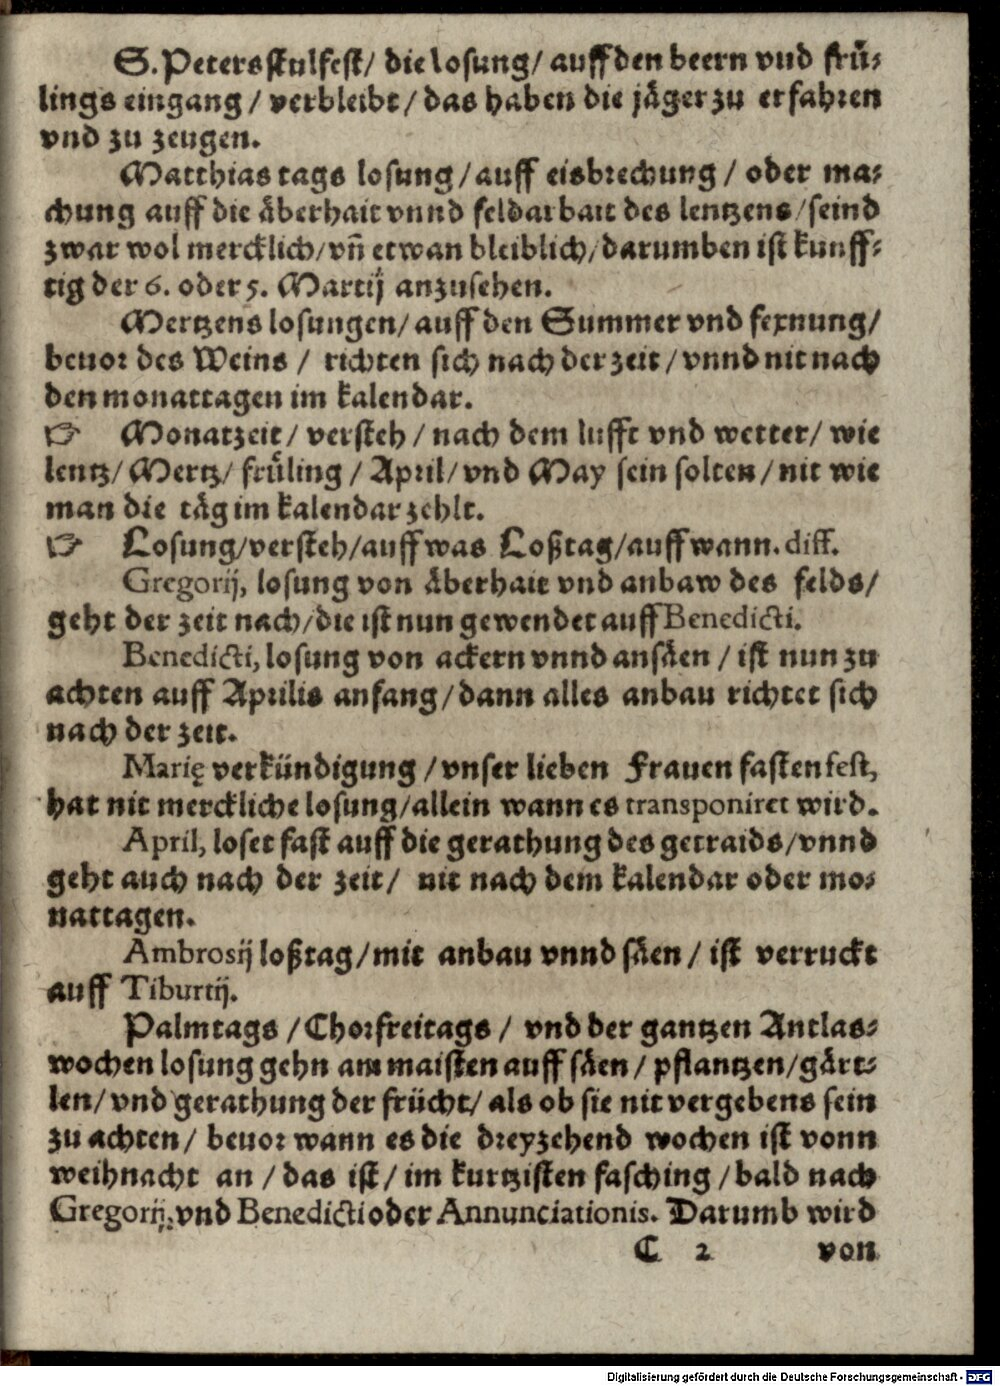 S. Peters stulfest/ die losung/ auff den beern vnd frü-
lings eingang / verbleibt/ das haben die jäger zu erfahren
vnd zu zeugen.
Matthias tags losung/auff eisbrechung / oder ma-
chung auff die äberhait vnnd feldarbait des lentzens/seind
zwar wol mercklich/vñ etwan bleiblich/darumben ist kunff-
tig der 6. oder 5. Martij anzusehen.
Mertzens losungen/ auff den Summer vnd fexnung/
beuor des Weins / richten sich nach der zeit/vnnd nit nach
den monattagen im kalendar.
☞ Monatzeit/ versteh / nach dem lufft vnd wetter/ wie
lentz/ Mertz/ früling / April/ vnd May sein solten/ nit wie
man die täg im kalendar zehlt.
☞ Losung/versteh/auff was Loßtag/auff wann. diff.
Gregorij, losung von äberhait vnd anbaw des felds/
geht der zeit nach/die ist nun gewendet auff Benedicti.
Benedicti, losung von ackern vnnd ansäen / ist nun zu
achten auff Aprilis anfang/dann alles anbau richtet sich
nach der zeit.
Marię verkündigung /vnser lieben Frauen fastenfest,
hat nit merckliche losung/allein wann es transponiret wird.
April, loset fast auff die gerathung des getraids/vnnd
geht auch nach der zeit/ nit nach dem kalendar oder mo-
nattagen.
Ambrosij loßtag/mit anbau vnnd säen / ist verruckt
auff Tiburtij.
Palmtags /Chorfreitags / vnd der gantzen Antlas-
wochen losung gehn am maisten auff säen / pflantzen/gärt-
len/ vnd gerathung der frücht/ als ob sie nit vergebens sein
zu achten/ beuor wann es die dreyzehend wochen ist vonn
weihnacht an / das ist/ im kurtzisten fasching /bald nach
Gregorij, vnd Benedicti oder Annunciationis. Darumb wird
C 2 von
Digitalisierung gefördert durch die Deutsche Forschungsgemeinschaft - DFG